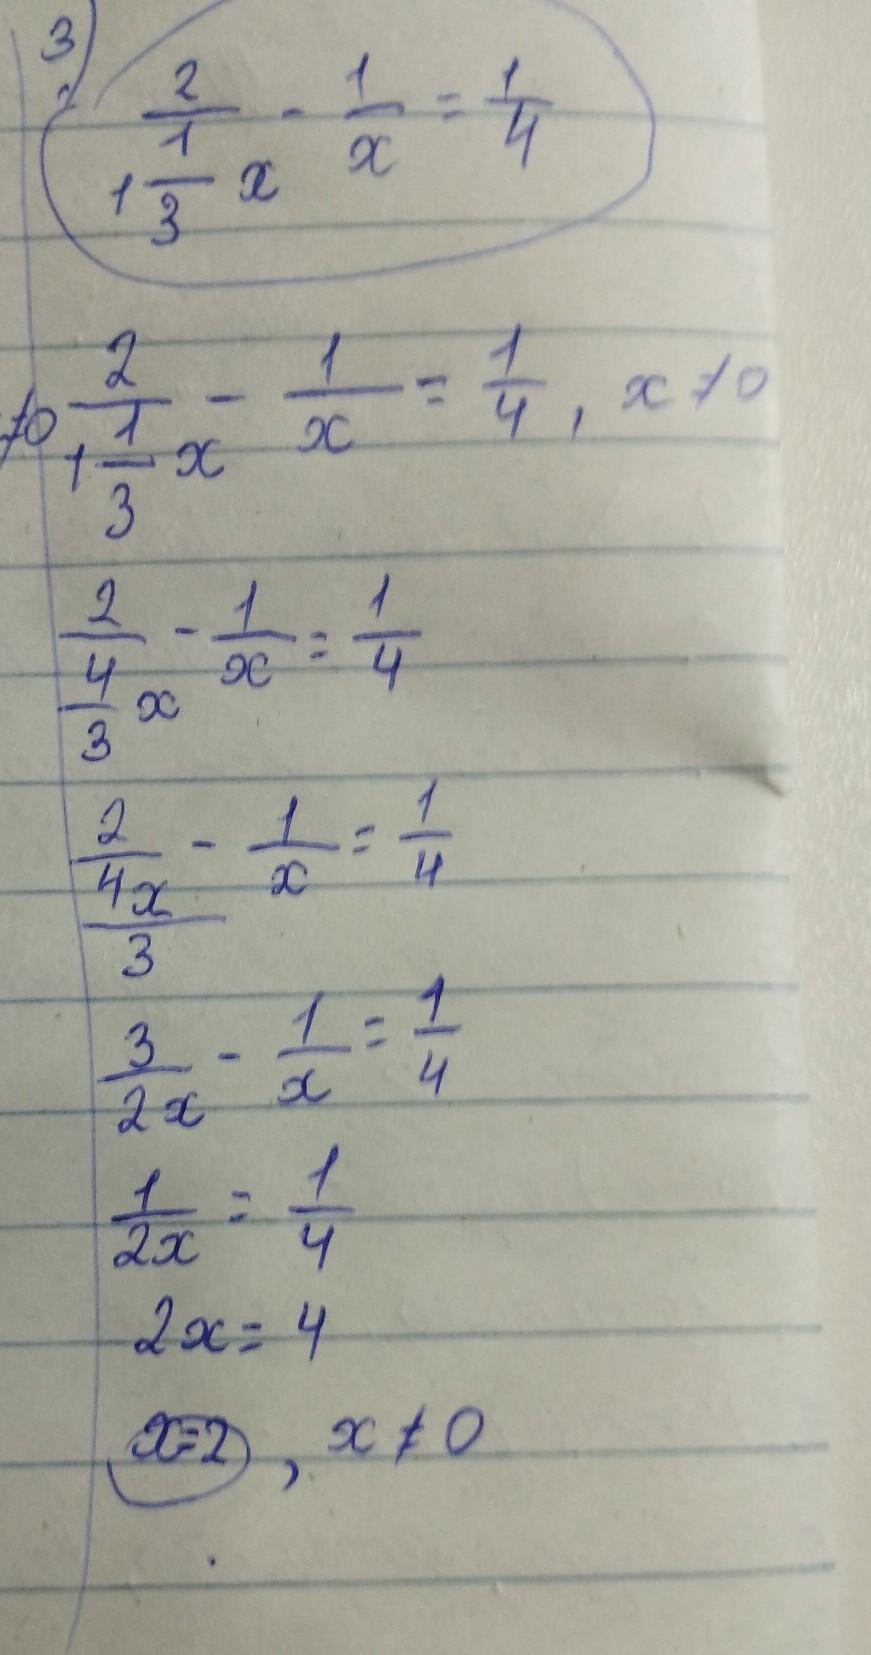 3)
2/(1 1/3 x) - 1/x = 1/4
≠0 2/(1 1/3 x) - 1/x = 1/4, x ≠ 0
2/(4/3 x) - 1/x = 1/4
2/(4x/3) - 1/x = 1/4
3/(2x) - 1/x = 1/4
1/(2x) = 1/4
2x = 4
x=2, x ≠ 0